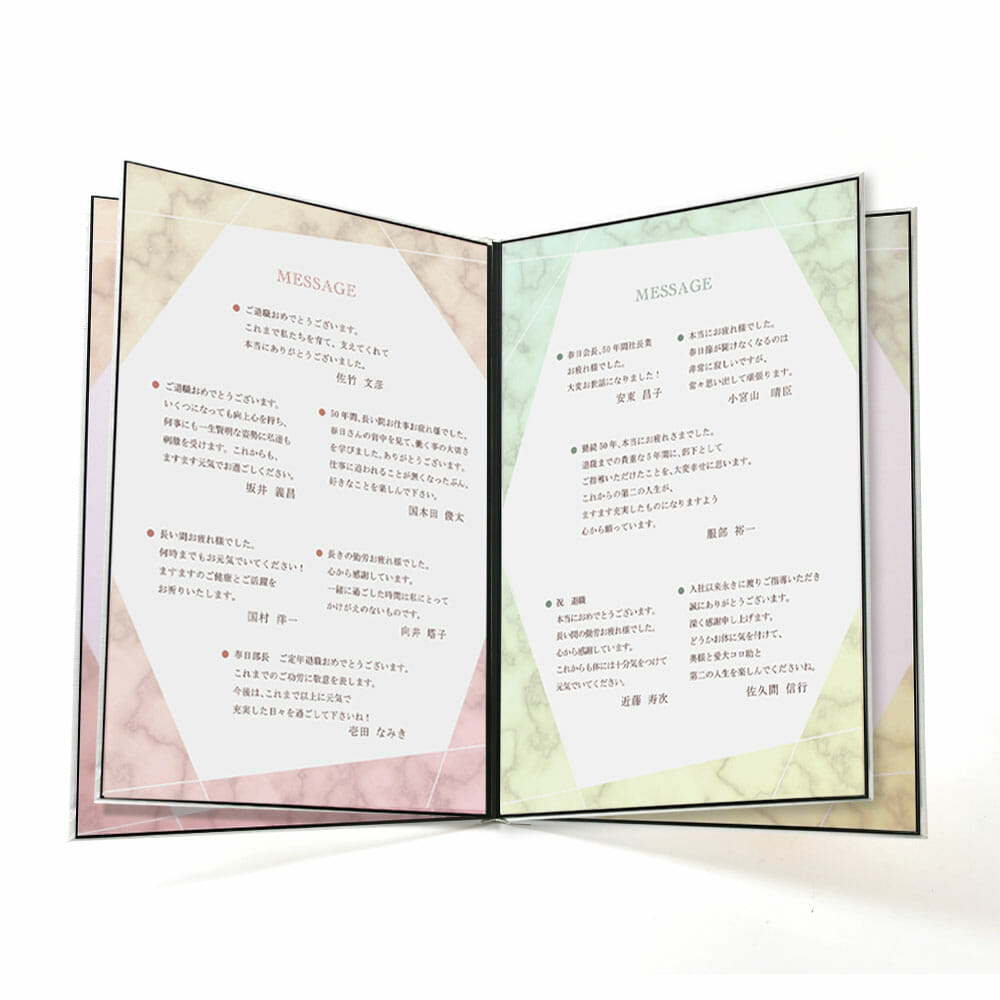 MESSAGE
ご退職おめでとうございます。
これまで私たちを育て、支えてくれて
本当にありがとうございました。
佐竹 文彦
ご退職おめでとうございます。
いくつになっても向上心を持ち、
何事にも一生賢明な姿勢に私達も
刺激を受けます。これからも、
ますます元気でお過ごしください。
坂井 義昌
50年間、長い間お仕事お疲れ様でした。
春日さんの背中を見て、働く事の大切さ
を学びました。ありがとうございます。
仕事に追われることが無くなったぶん、
好きなことを楽しんで下さい。
国本田 俊太
長い間お疲れ様でした。
何時までもお元気でいてください！
ますますのご健康とご活躍を
お祈りいたします。
国村 洋一
長きの勤労お疲れ様でした。
心から感謝しています。
一緒に過ごした時間は私にとって
かけがえのないものです。
向井 塔子
春日部長 ご定年退職おめでとうございます。
これまでのご功労に敬意を表します。
今後は、これまで以上に元気で
充実した日々を過ごして下さいね！
壱田 なみき
MESSAGE
春日会長、50年間社長業
お疲れ様でした。
大変お世話になりました！
安東 昌子
本当にお疲れ様でした。
春日節が聞けなくなるのは
非常に寂しいですが、
常々思い出して頑張ります。
小宮山 晴臣
勤続50年、本当にお疲れさまでした。
退職までの貴重な5年間に、部下として
ご指導いただけたことを、大変幸せに思います。
これからの第二の人生が、
ますます充実したものになりますよう
心から願っています。
服部 裕一
祝 退職
本当におめでとうございます。
長い間の勤労お疲れ様でした。
心から感謝しています。
これからも体には十分気をつけて
元気でいてください。
近藤 寿次
入社以来永きに渡りご指導いただき
誠にありがとうございます。
深く感謝申し上げます。
どうかお体に気を付けて、
奥様と愛犬ココ助と
第二の人生を楽しんでくださいね。
佐久間 信行